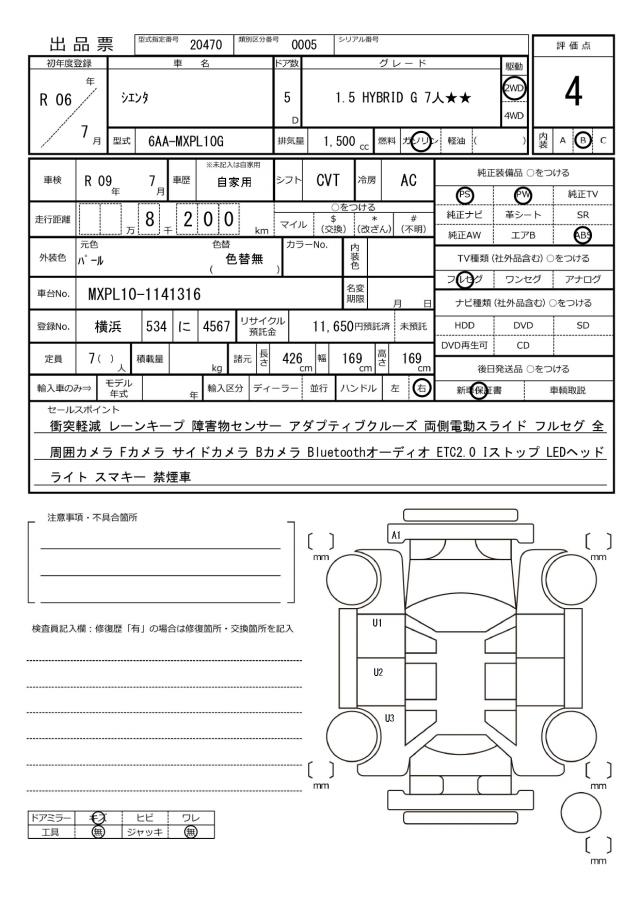 出品票 型式指定番号 20470 類別区分番号 0005 シリアル番号
評価点
4
初年度登録 車名 ドア数 グレード 駆動
R 06 年 7 月 シエンタ 5 D 1.5 HYBRID G 7人★★ 2WD 4WD
型式 6AA-MXPL10G 排気量 1,500 cc 燃料 ガソリン 軽油 ( ) 内装 A B C
車検 R 09 年 7 月 車歴 ※未記入は自家用 自家用 シフト CVT 冷房 AC
走行距離 万 8 千 2 0 0 km ○をつける
マイル $(交換) *(改ざん) #(不明)
外装色 元色 パール 色替 ( 色替無 ) カラーNo. 内装色
車台No. MXPL10-1141316 名変期限 月 日
登録No. 横浜 534 に 4567 リサイクル預託金 11,650円預託済 未預託
定員 7( )人 積載量 kg 諸元 長さ 426 cm 幅 169 cm 高さ 169 cm
輸入車のみ⇒ モデル年式 年 輸入区分 ディーラー 並行 ハンドル 左 右
純正装備品 ○をつける
PS PW 純正TV
純正ナビ 革シート SR
純正AW エアB ABS
TV種類(社外品含む)○をつける
フルセグ ワンセグ アナログ
ナビ種類(社外品含む)○をつける
HDD DVD SD
DVD再生可 CD
後日発送品 ○をつける
新車保証書 車輌取説
セールスポイント
衝突軽減 レーンキープ 障害物センサー アダプティブクルーズ 両側電動スライド フルセグ 全
周囲カメラ Fカメラ サイドカメラ Bカメラ Bluetoothオーディオ ETC2.0 Iストップ LEDヘッド
ライト スマキー 禁煙車
注意事項・不具合箇所
検査員記入欄:修復歴「有」の場合は修復箇所・交換箇所を記入
A1
[ ] mm [ ] mm
U1
U2
U3
[ ] mm [ ] mm
[ ] mm
ドアミラー キズ ヒビ ワレ
工具 無 ジャッキ 無